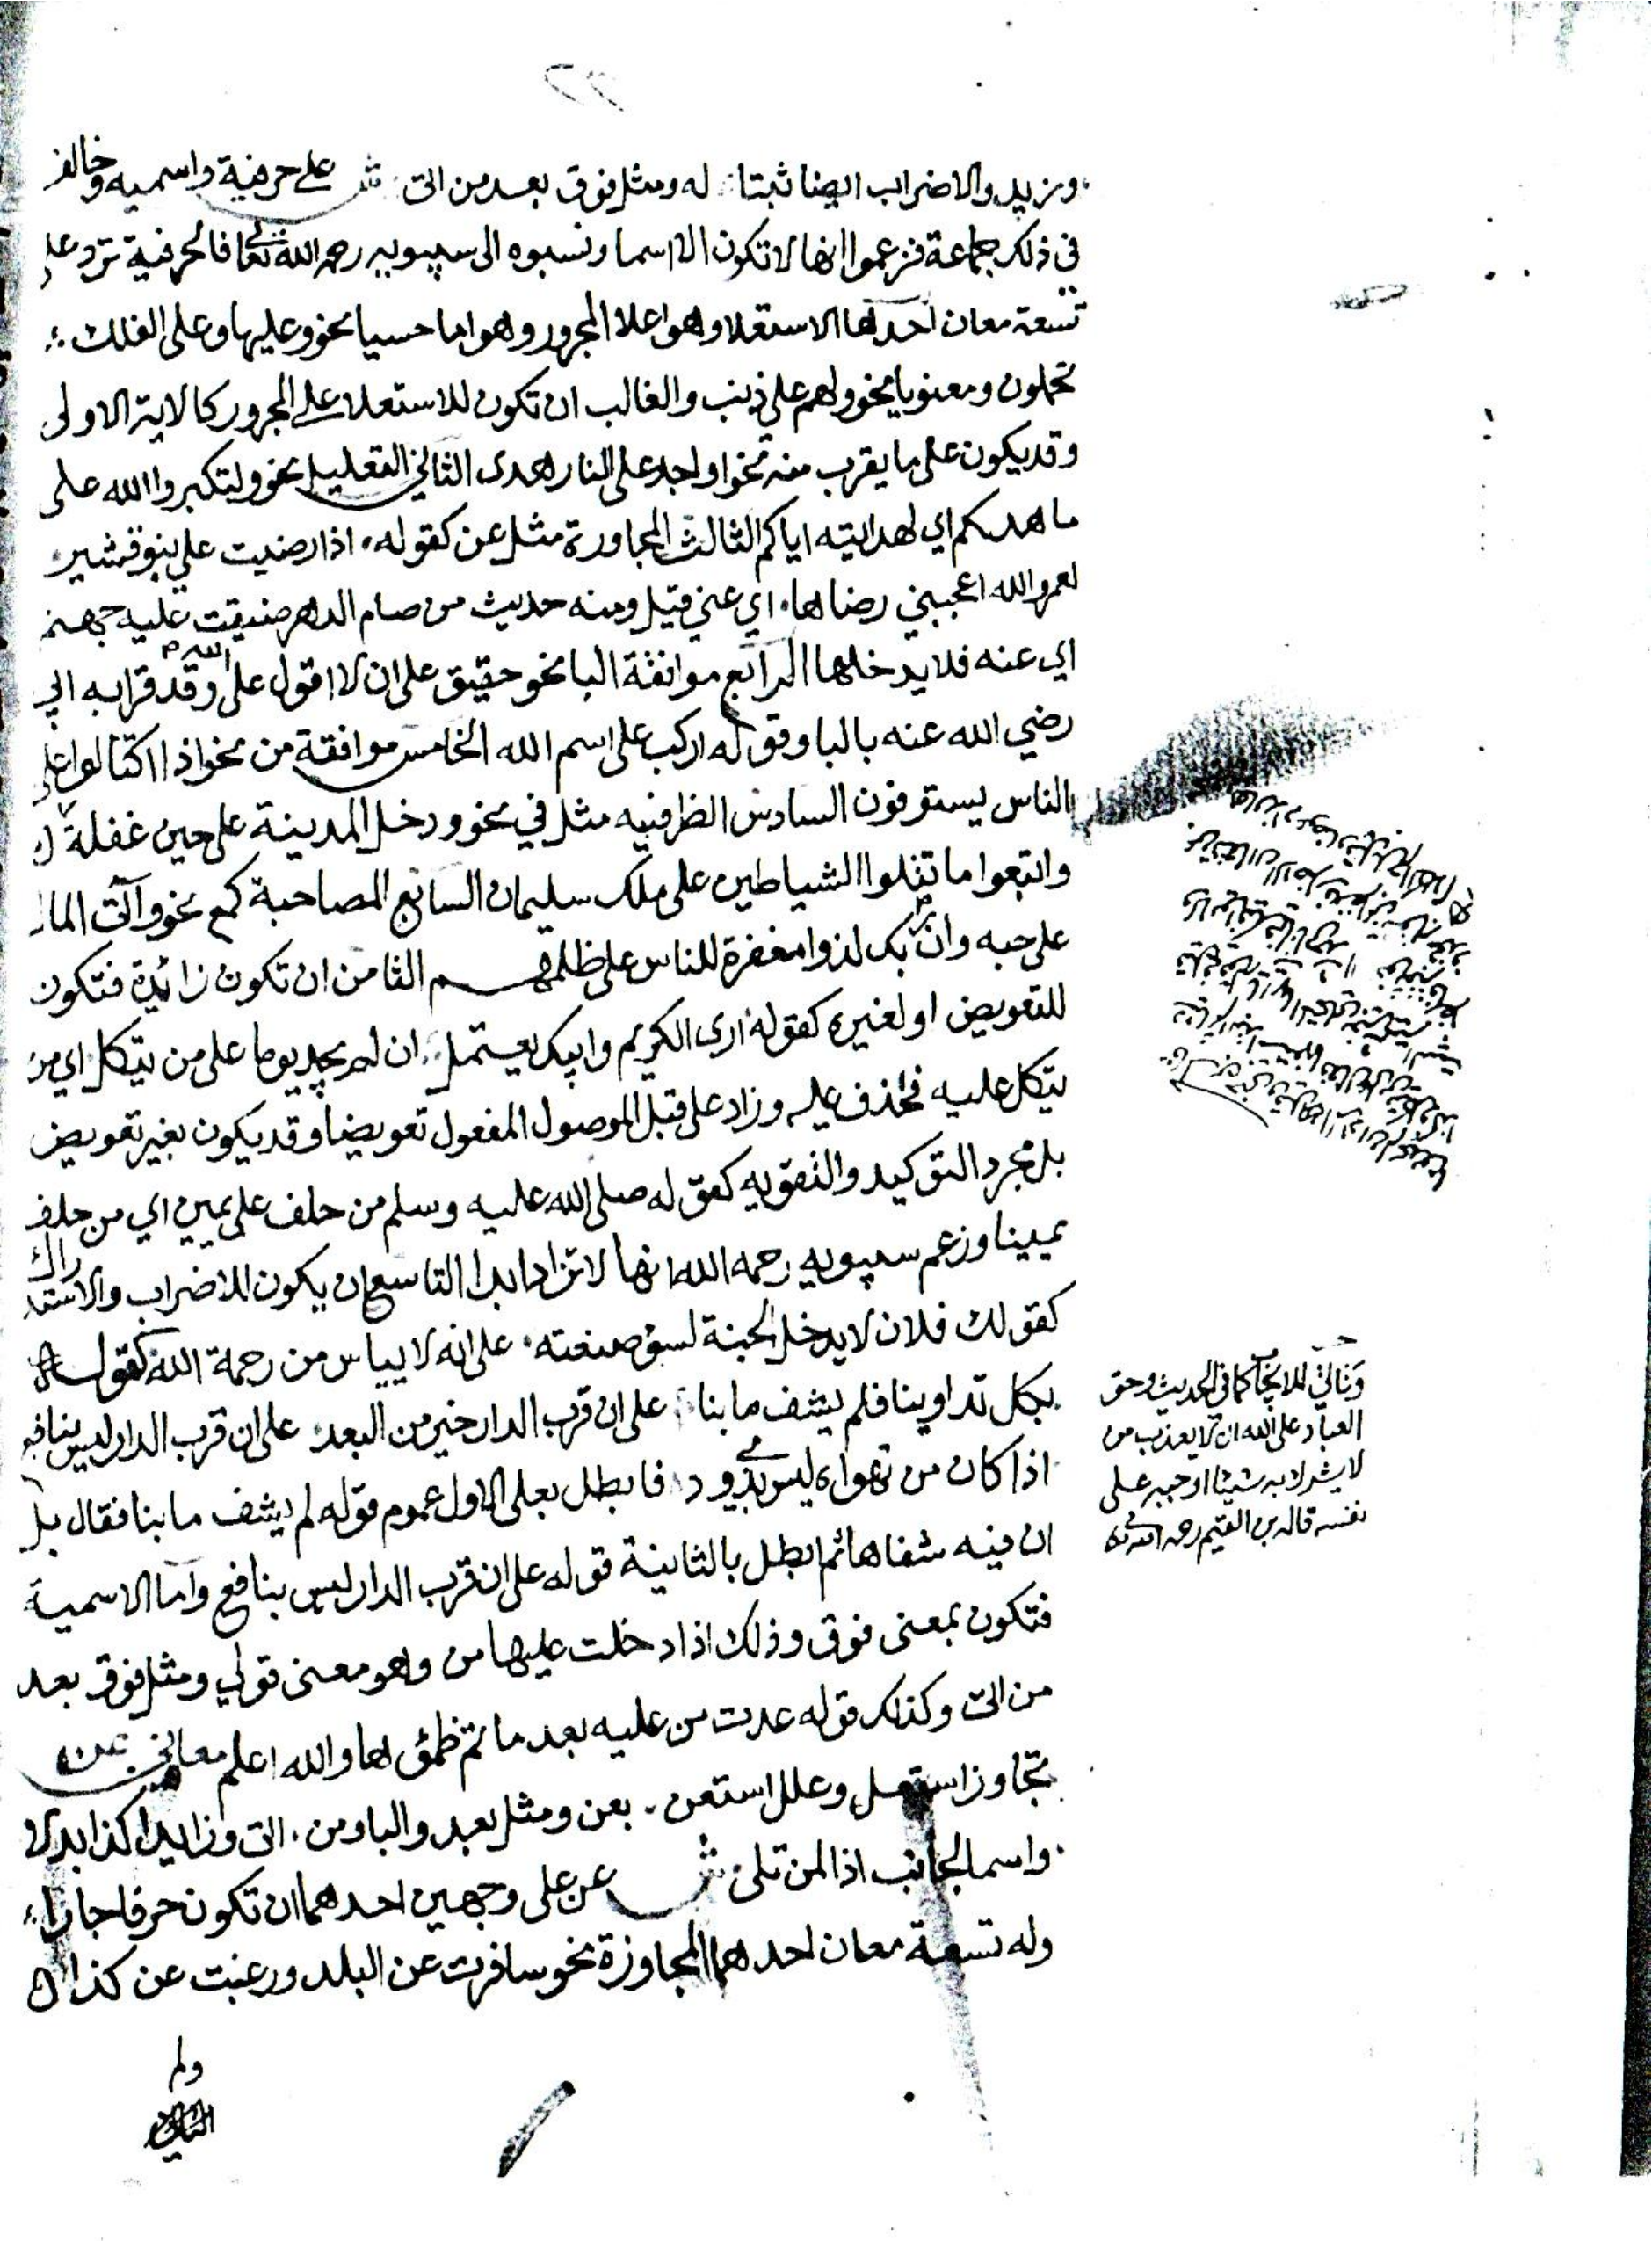 وزيد والاضراب ايضا ثبتا له ومثل فوق بعد من اتى ش على حرفية واسميه وخالف
في ذلك جماعة فزعموا انها لا تكون الا اسما ونسبوه الى سيبويه رحمه الله تعا فالحرفية ترد على
تسعة معان احدها الاستعلا وهو اعلا المجرور وهو اما حسيا نحو وعليها وعلى الفلك
تحملون ومعنويا نحو ولهم علي ذنب والغالب ان تكون للاستعلا على المجرور كالاية الاولى
وقد يكون على ما يقرب منه نحو او اجد على النار هدى الثاني التعليل نحو ولتكبروا الله على
ما هديكم اي لهدايته اياكم الثالث المجاورة مثل عن كقوله اذا رضيت علي بنو قشير
لعمر الله اعجبني رضاها اي عني قيل ومنه حديث من صام الدهر ضيقت عليه جهنم
اي عنه فلا يدخلها الرابع موافقة البا نحو حقيق على ان لا اقول على الله وقد قرا به ابي
رضي الله عنه بالبا وقوله اركب على اسم الله الخامس موافقة من نحو اذا اكتالوا على
الناس يستوفون السادس الظرفيه مثل في نحو ودخل المدينة على حين غفلة
واتبعوا ما تتلوا الشياطين على ملك سليمان السابع المصاحبة كمع نحو وآتى المال
على حبه وان ربك لذوا مغفرة للناس على ظلمهم الثامن ان تكون زائدة فتكون
للتعويض او لغيره كقوله ارى الكريم وابيك يعتمل ان لم يجد يوما على من يتكل اي من
يتكل عليه فحذف عليه وزاد على قبل الموصول المفعول تعويضا وقد يكون بغير تعويض
بل مجرد التوكيد والتقويه كقوله صلى الله عليه وسلم من حلف على يمين اي من حلف
يمينا وزعم سيبويه رحمه الله انها لا تزاد ابدا التاسع ان يكون للاضراب والاستدراك
كقولك فلان لا يدخل الجنة لسؤ صنعته على انه لا يياس من رحمة الله كقوله
بكل تداوينا فلم يشف ما بنا على ان قرب الدار خير من البعد على ان قرب الدار ليس بنافع
اذا كان من تهواه ليس بذي ود فابطل بعلى الاول عموم قوله لم يشف ما بنا فقال بل
ان فيه شفاها ثم ابطل بالثانية قوله على ان قرب الدار ليس بنافع واما الاسمية
فتكون بمعنى فوق وذلك اذا دخلت عليها من وهو معنى قولي ومثل فوق بعد
من اتى وكذلك قوله غدت من عليه بعد ما تم ظمؤها والله اعلم معاني عن
تجاوز استعل وعلل استعن بعن ومثل بعد والبا ومن اتى وزايدا كذا بدلا
واسما لجانب اذا لمن تلى ش عن على وجهين احدهما ان تكون حرفا جارا
وله تسعة معان احدهما المجاوزة نحو سافرت عن البلد ورغبت عن كذا
وتاتي للايجاب كما في الحديث وحق
العباد على الله ان لا يعذب من
لا يشرك به شيئا اوجبه على
نفسه قاله بن القيم رحمه الله تعا
ولم